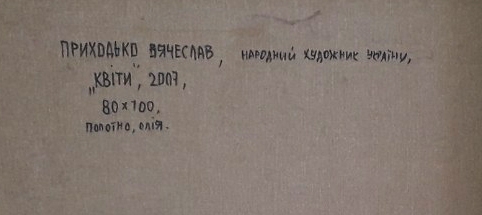 ПРИХОДЬКО ВЯЧЕСЛАВ, НАРОДНИЙ ХУДОЖНИК УКРАЇНИ,
„КВІТИ", 2007,
80×100,
ПОЛОТНО, ОЛІЯ.